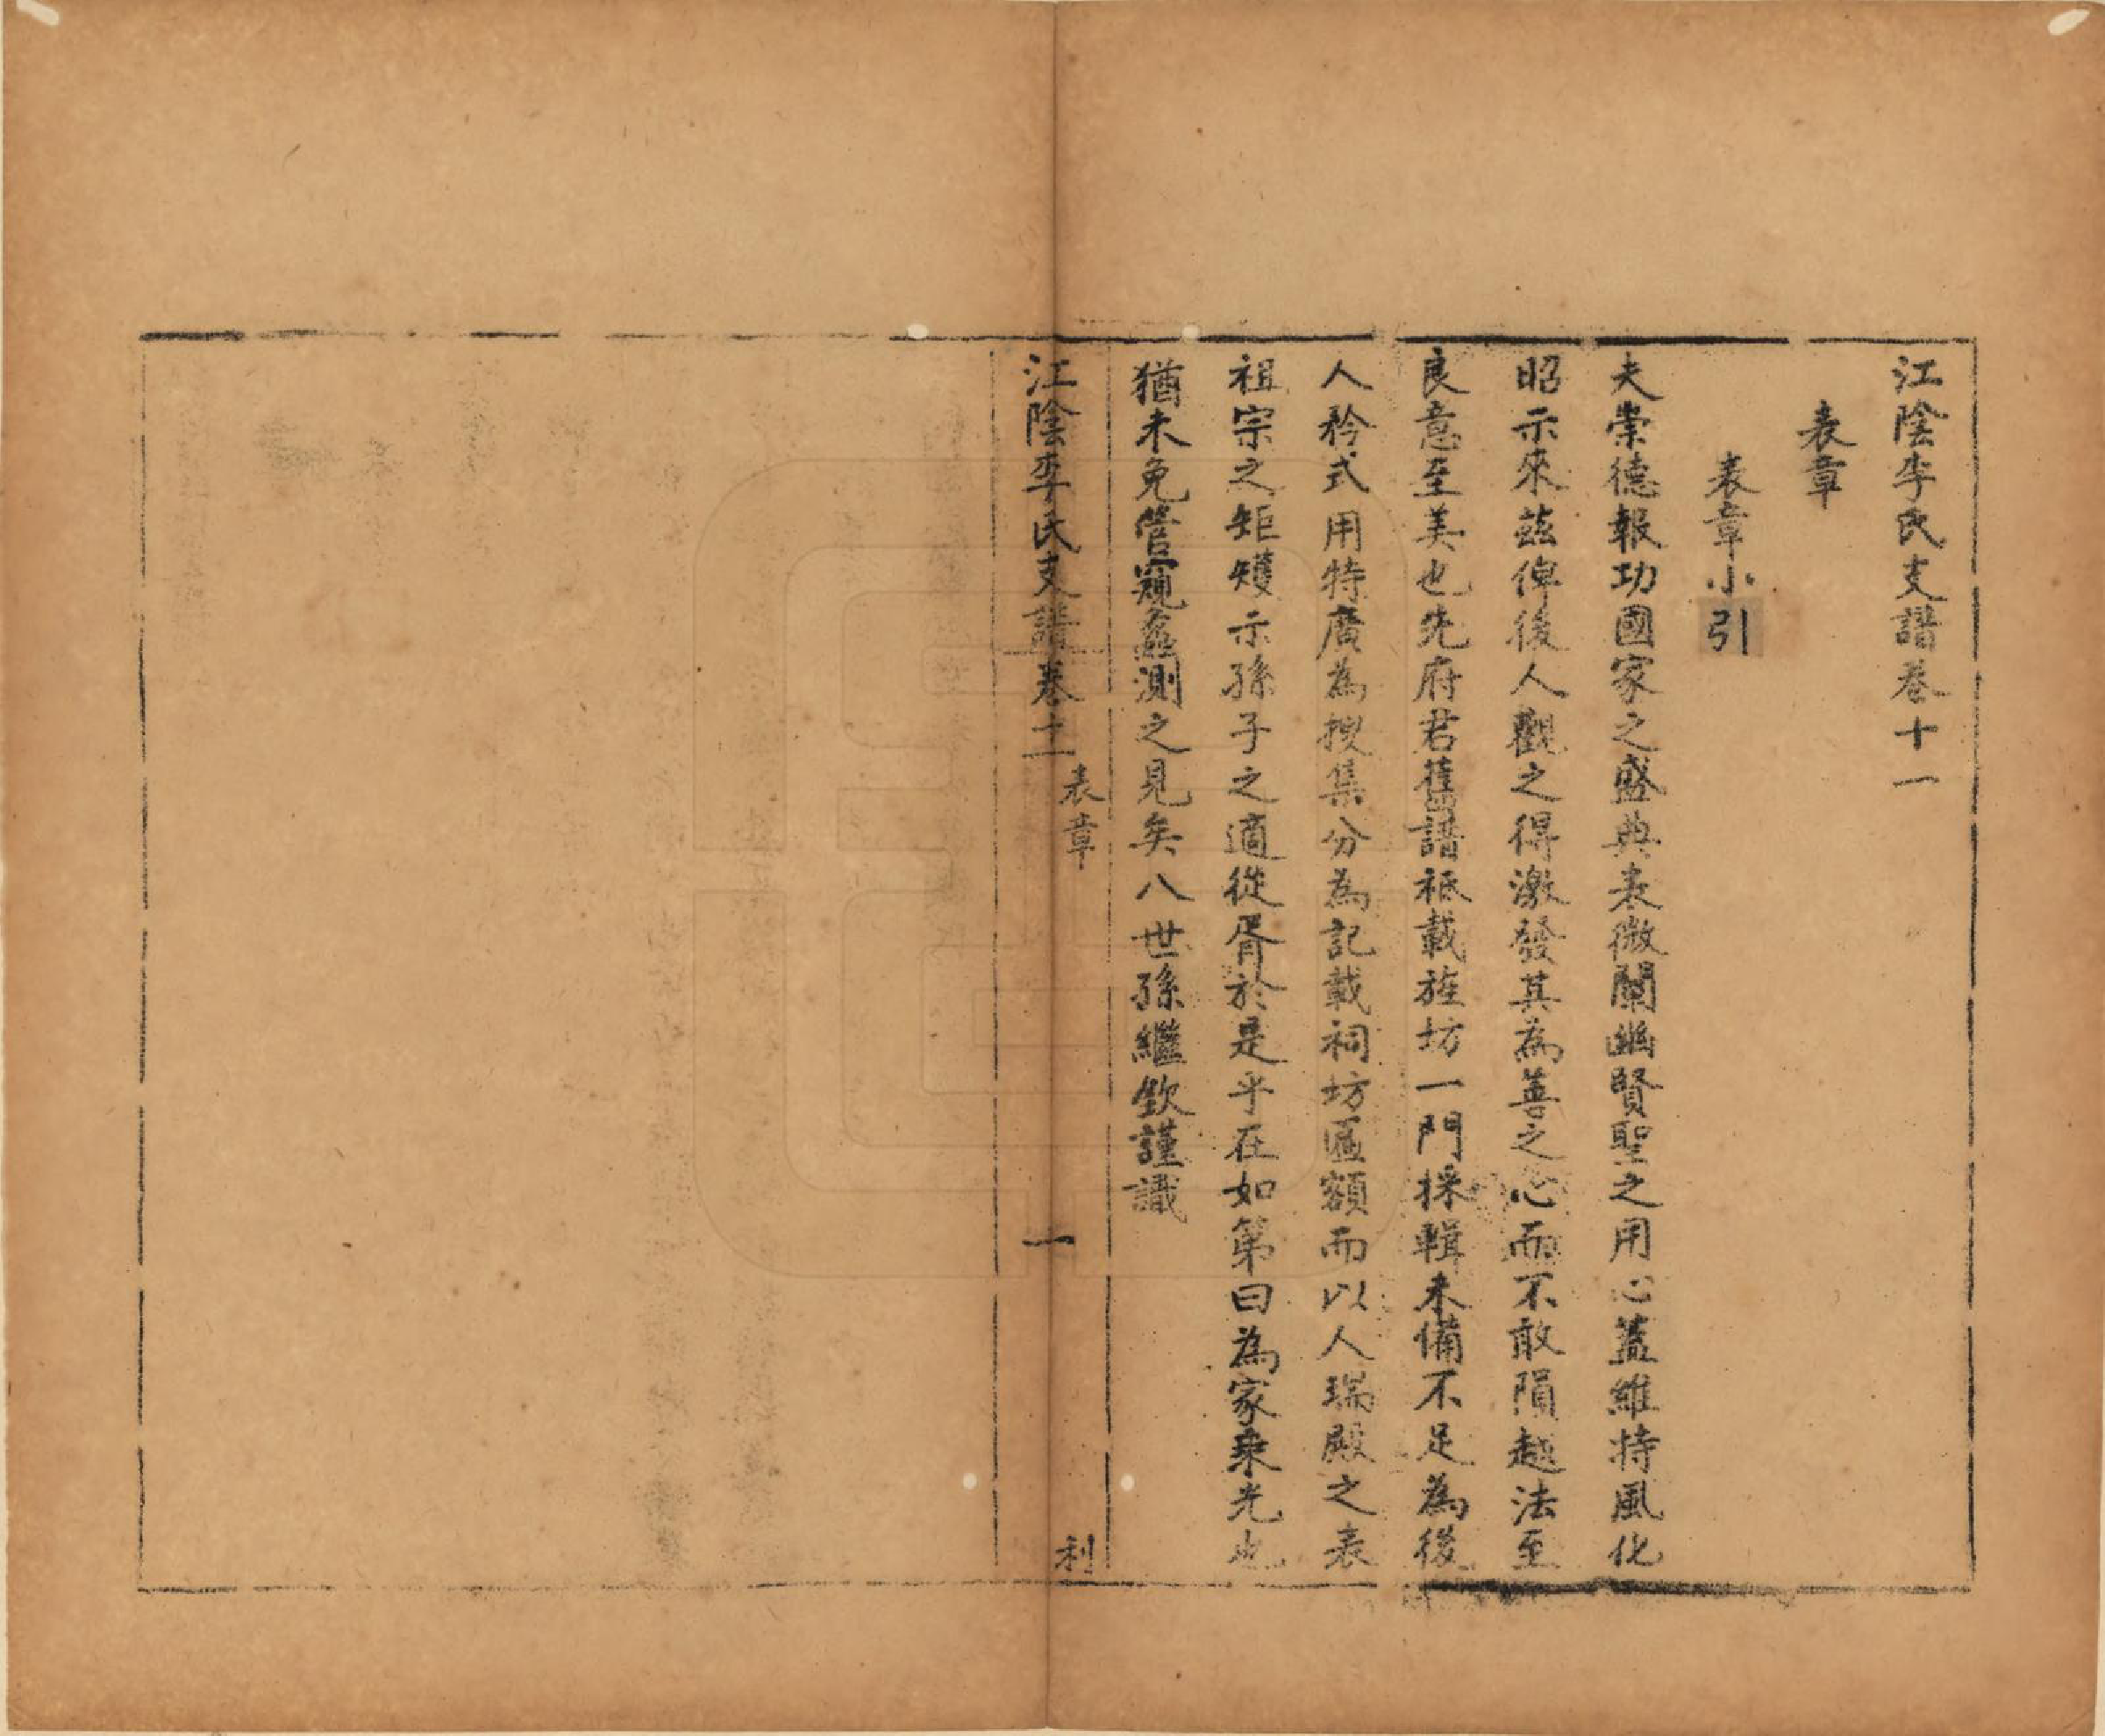 江陰李氏支譜卷十一
表章
表章小引
夫崇德報功國家之盛典表微闡幽賢聖之用心蓋維持風化
昭示來茲俾後人觀之得激發其為善之心而不敢隕越法至
良意至美也先府君舊譜祗載旌坊一門採輯未備不足為後
人矜式用特廣為搜集分為記載祠坊匾額而以人瑞殿之表
祖宗之矩矱示孫子之適從胥於是乎在如第曰為家乘光也
猶未免管窺蠡測之見矣八世孫繼欽謹識
江陰李氏支譜卷十一
表章
一
利